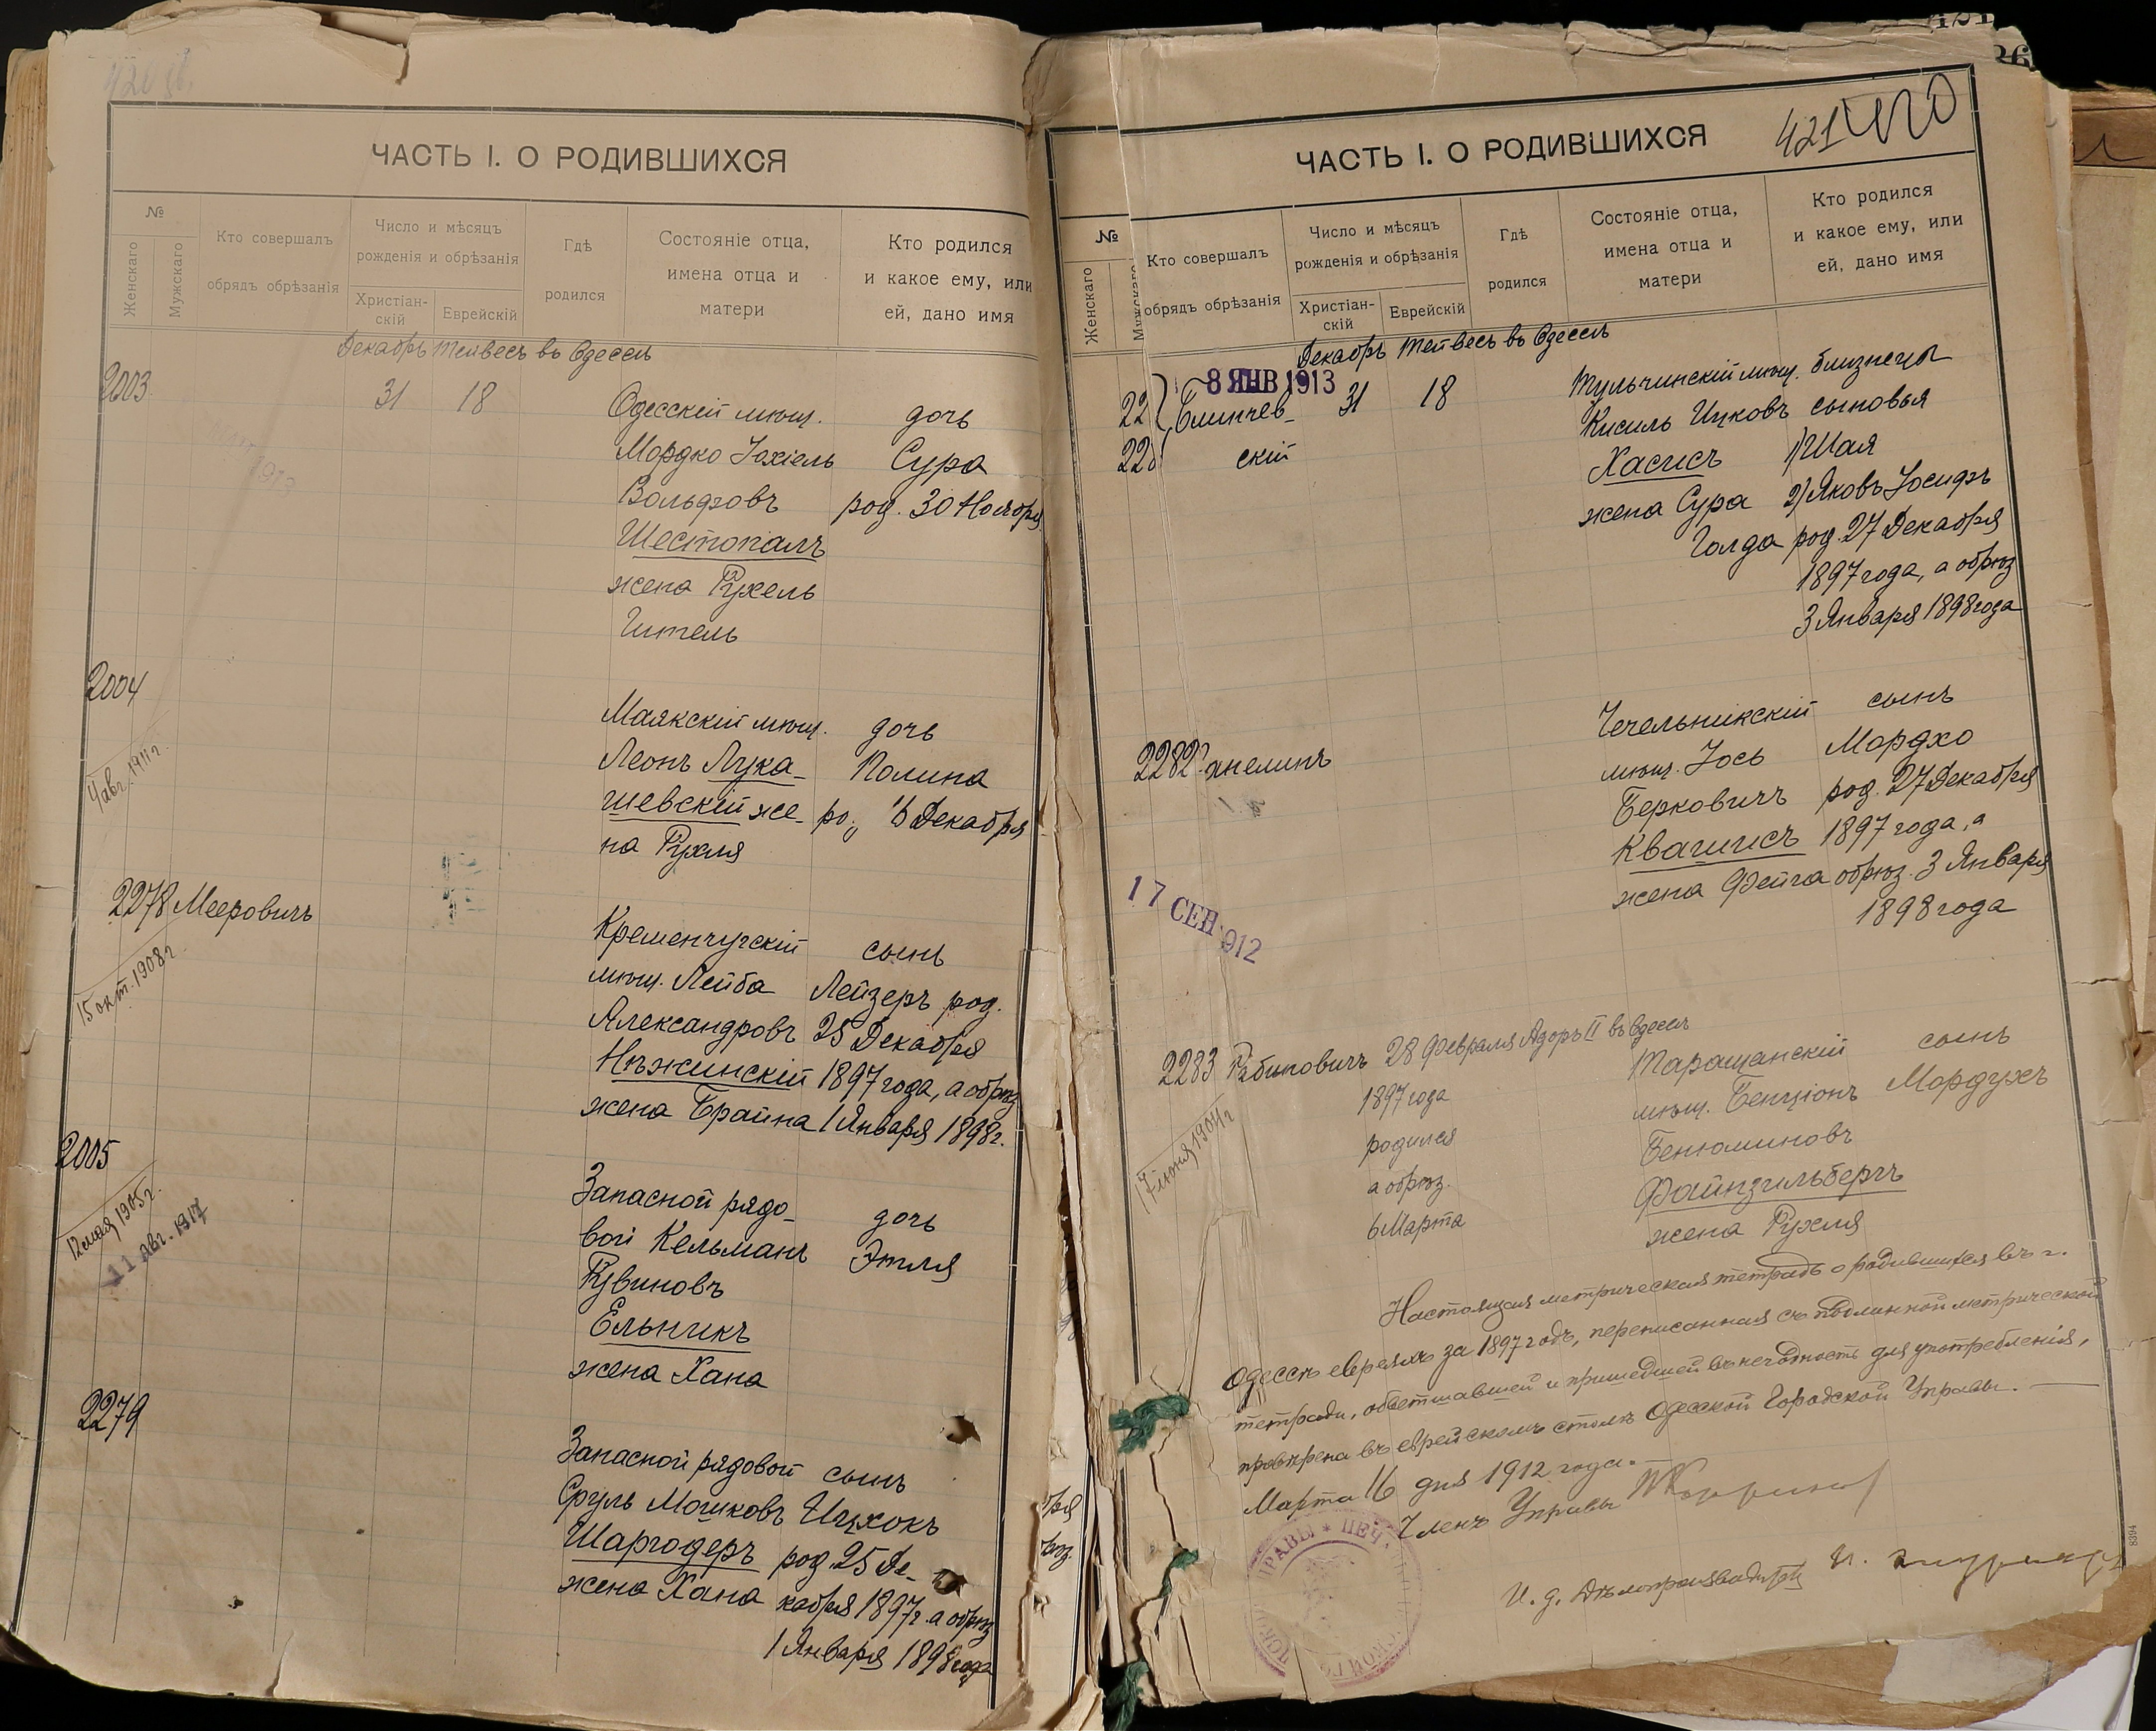 ЧАСТЬ I. О РОДИВШИХСЯ
№
Женскаго
Мужскаго
Кто совершалъ
обрядъ обрѣзанія
Число и мѣсяцъ
рожденія и обрѣзанія
Христіан-
скій
Еврейскій
Гдѣ
родился
Состояніе отца,
имена отца и
матери
Кто родился
и какое ему, или
ей, дано имя
Декабрь Тейвесъ въ Одессѣ
2003
31 18
Одесскій мѣщ. дочь
Мордко Іохіель Сура
Вольфовъ род. 30 Ноября
Шестопалъ
жена Рухель
Гитель
2004
4 авг. 1911 г.
Маякскій мѣщ. дочь
Леонъ Лука- Полина
шевскій же- Декабря
на Рухля
2278 Мееровичъ
15 окт. 1908 г.
Кременчугскій сынъ
мѣщ. Лейба Лейзеръ род.
Александровъ 25 Декабря
Нѣжинскій 1897 года, а обрѣз
жена Брайна 1 Января 1898 г.
2005
12 мая 1905 г.
11 АВГ. 1917
Запасной рядо- дочь
вой Кельманъ Этля
Рувиновъ
Ельникъ
жена Хана
2279
Запасной рядовой сынъ
Сруль Мошковъ Ицхокъ
Шаргодеръ род. 25 Де-
жена Хана кабря 1897 г. а обрѣз
1 Января 1898 года
ЧАСТЬ I. О РОДИВШИХСЯ
421
420
№
Женскаго
Мужскаго
Кто совершалъ
обрядъ обрѣзанія
Число и мѣсяцъ
рожденія и обрѣзанія
Христіан-
скій
Еврейскій
Гдѣ
родился
Состояніе отца,
имена отца и
матери
Кто родился
и какое ему, или
ей, дано имя
Декабрь Тейвесъ въ Одессѣ
8 ЯНВ 1913
22 Блинчев- 31 18 Тульчинскій мѣщ. близнецы
скій Кисиль Ицковъ сыновья
Хасисъ 1) Шая
жена Сура 2) Яковъ Іосифъ
Голда род. 27 Декабря
1897 года, а обрѣз
3 Января 1898 года
2282
Чечельникскій сынъ
мѣщ. Іось Мордхо
Берковичъ род. 27 Декабря
Квашисъ 1897 года, а
жена Фейга обрѣз. 3 Января
1898 года
17 СЕН 912
2283 Рабиновичъ 28 Февраля Адоръ II въ Одессѣ
17 іюня 1904 г.
1897 года
родился
а обрѣз.
6 Марта
Таращанскій сынъ
мѣщ. Бенціонъ Мордухъ
Бенюминовъ
Файнзильбергъ
жена Рухля
Настоящая метрическая тетрадь о родившихся въ г.
Одессѣ евреяхъ за 1897 годъ, переписанная съ подлинной метрической
тетради, обветшавшей и пришедшей въ негодность для употребленія,
провѣрена въ еврейскомъ столѣ Одесской Городской Управы.
Марта 16 дня 1912 года.
Членъ Управы
И. д. Дѣлопроизводителя
8394